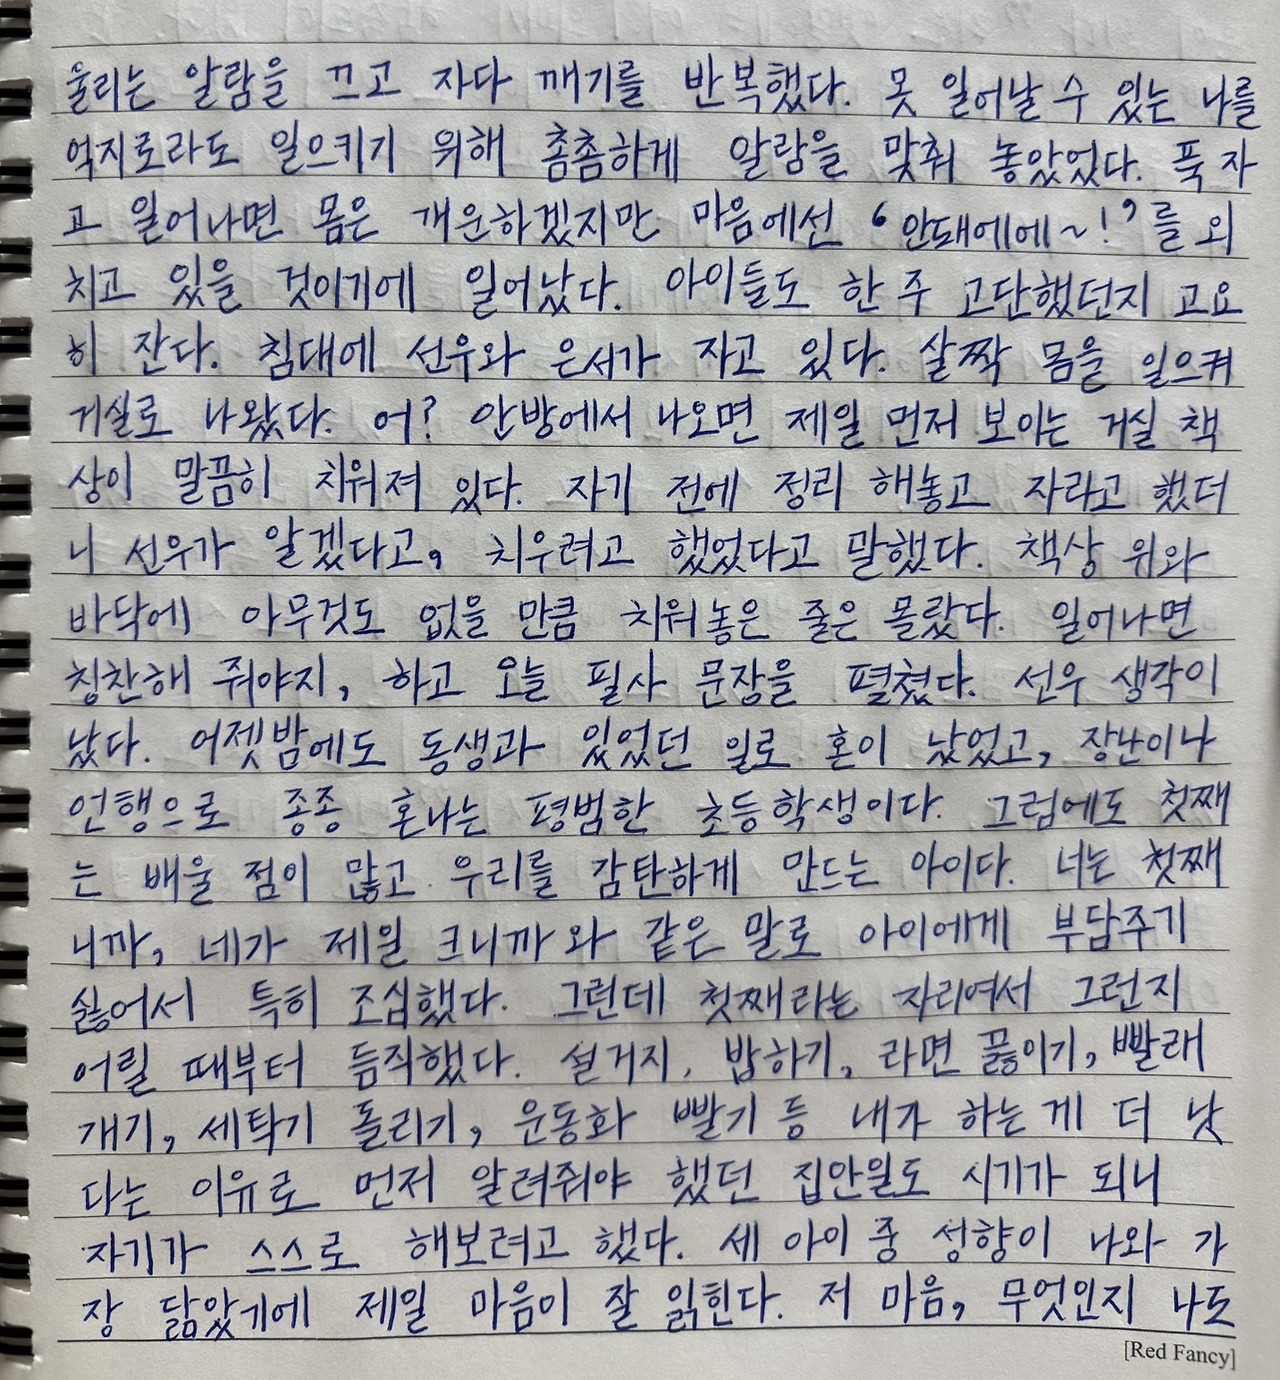 울리는 알람을 끄고 자다 깨기를 반복했다. 못 일어날 수 있는 나를
억지로라도 일으키기 위해 촘촘하게 알람을 맞춰 놓았었다. 푹 자
고 일어나면 몸은 개운하겠지만 마음에선 ‘안돼에에~!’를 외
치고 있을 것이기에 일어났다. 아이들도 한 주 고단했던지 고요
히 잔다. 침대에 선우와 은서가 자고 있다. 살짝 몸을 일으켜
거실로 나왔다. 어? 안방에서 나오면 제일 먼저 보이는 거실 책
상이 말끔히 치워져 있다. 자기 전에 정리 해놓고 자라고 했더
니 선우가 알겠다고, 치우려고 했었다고 말했다. 책상 위와
바닥에 아무것도 없을 만큼 치워놓은 줄은 몰랐다. 일어나면
칭찬해 줘야지, 하고 오늘 필사 문장을 펼쳤다. 선우 생각이
났다. 어젯밤에도 동생과 있었던 일로 혼이 났었고, 장난이나
언행으로 종종 혼나는 평범한 초등학생이다. 그럼에도 첫째
는 배울 점이 많고 우리를 감탄하게 만드는 아이다. 너는 첫째
니까, 네가 제일 크니까 와 같은 말로 아이에게 부담주기
싫어서 특히 조심했다. 그런데 첫째라는 자리여서 그런지
어릴 때부터 듬직했다. 설거지, 밥하기, 라면 끓이기, 빨래
개기, 세탁기 돌리기, 운동화 빨기 등 내가 하는 게 더 낫
다는 이유로 먼저 알려줘야 했던 집안일도 시기가 되니
자기가 스스로 해보려고 했다. 세 아이 중 성향이 나와 가
장 닮았기에 제일 마음이 잘 읽힌다. 저 마음, 무엇인지 나도
[Red Fancy]